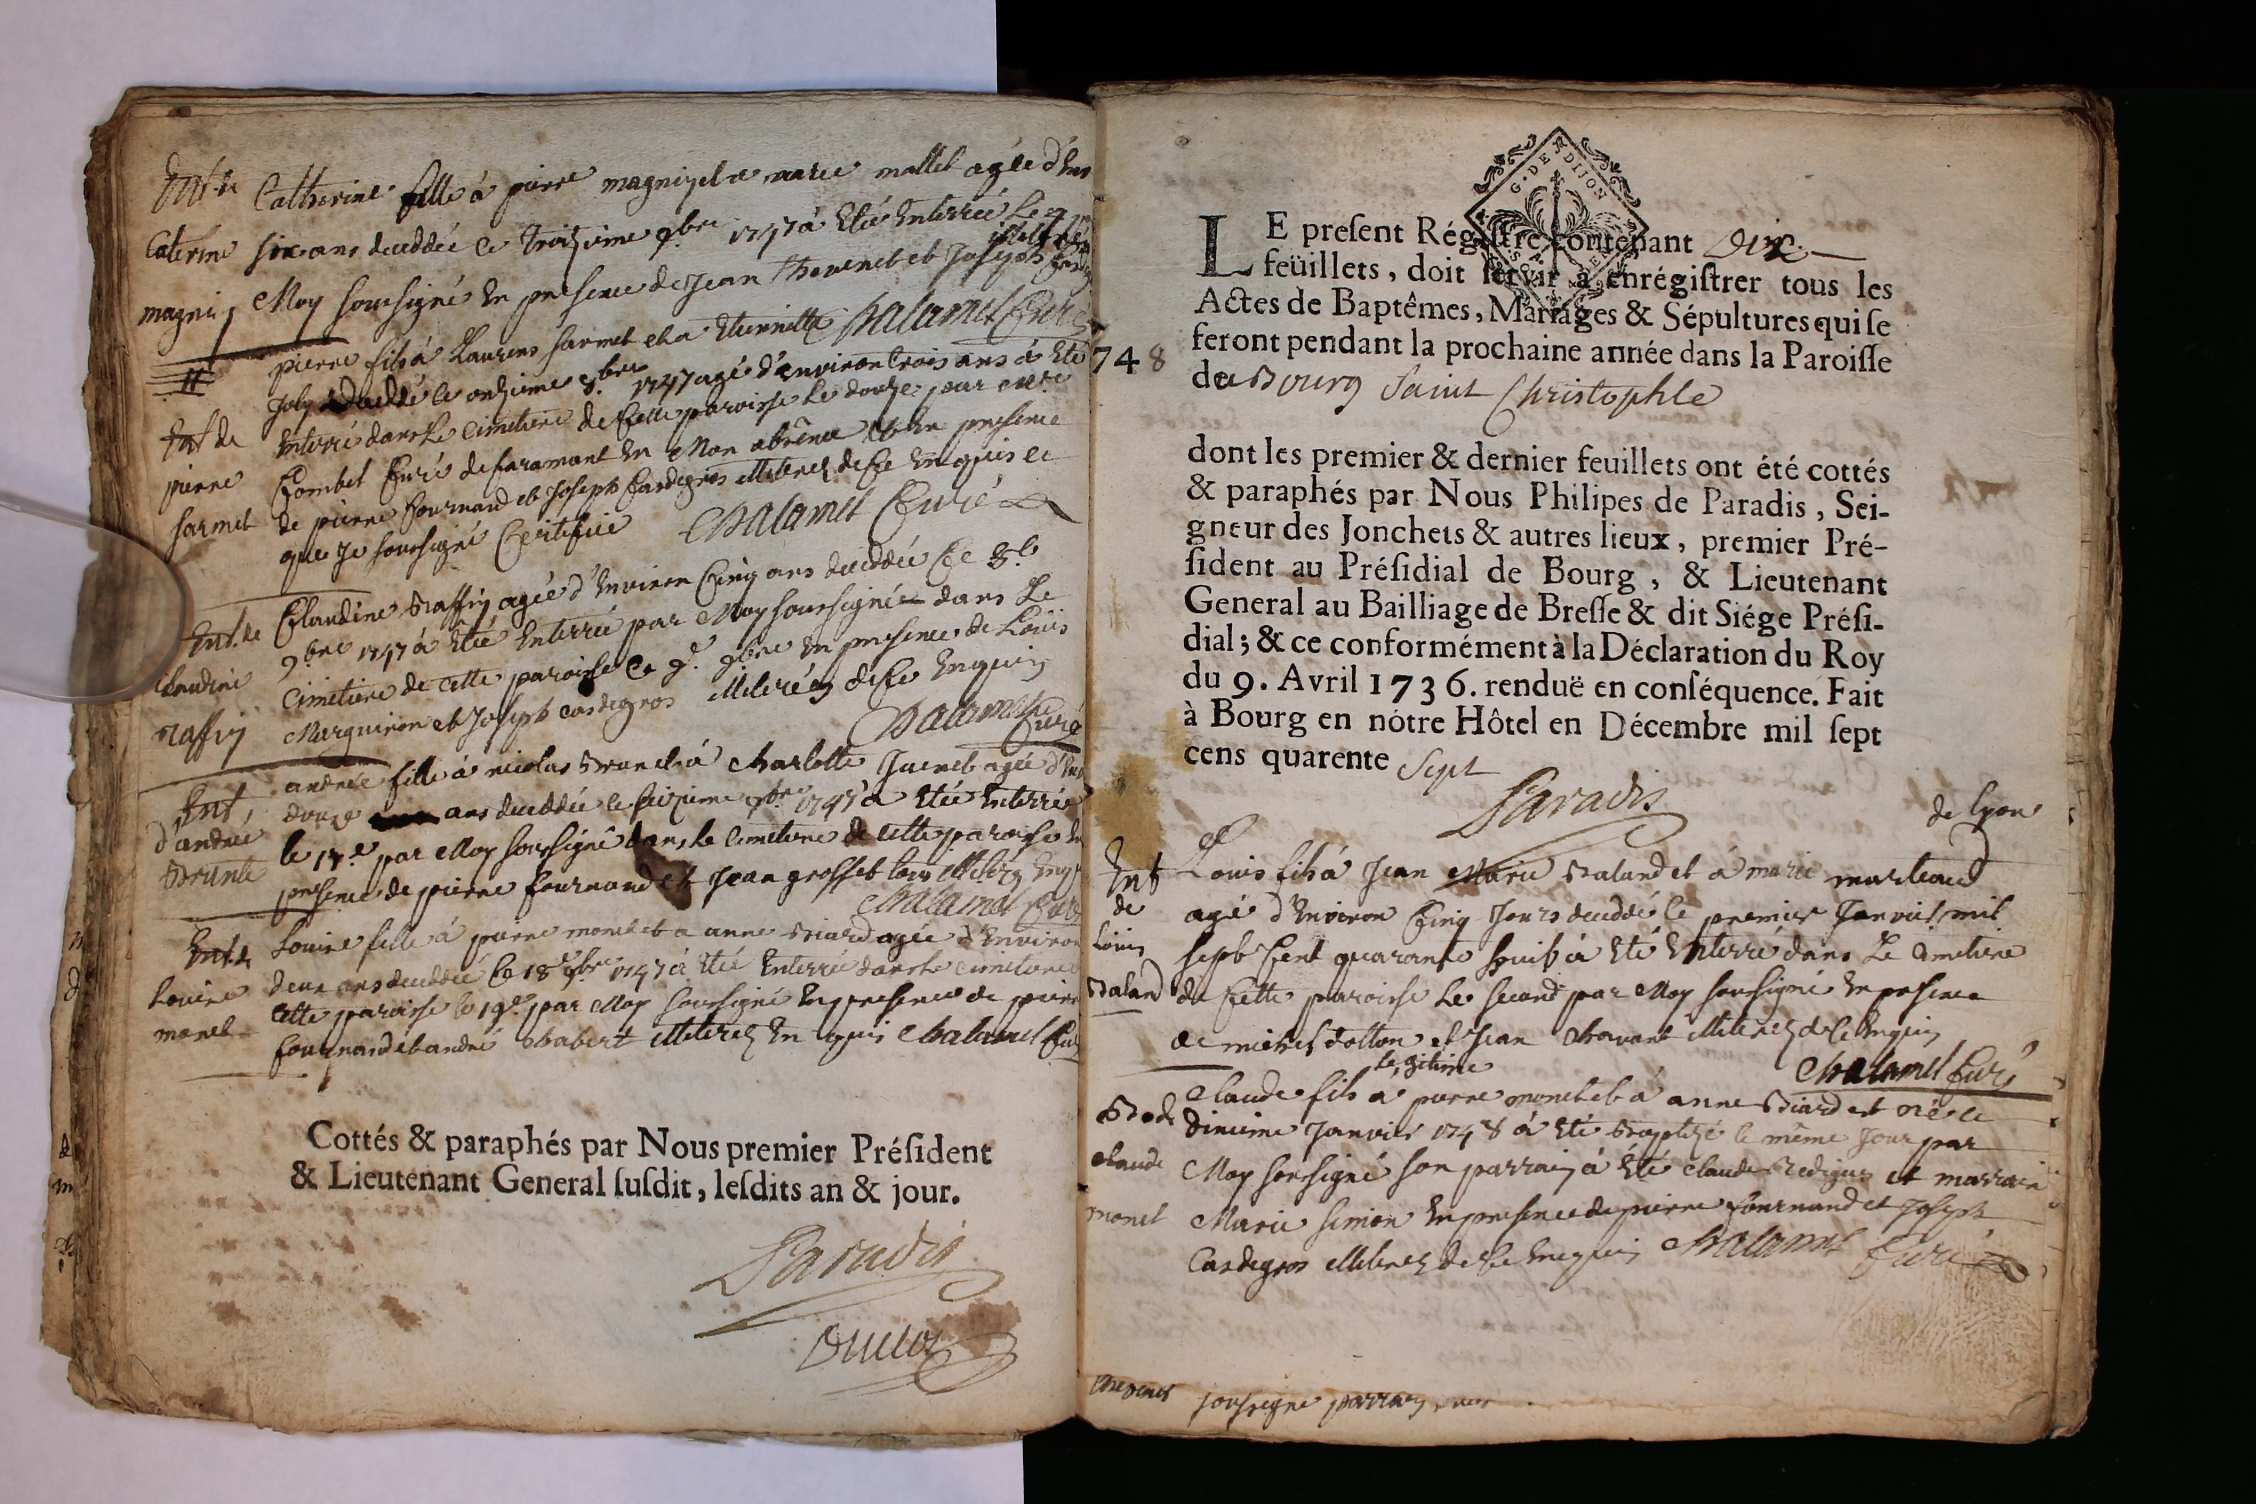 Ent de
Caterine
magnin
Catherine fille à pierre magnin et a marie mallet agée d'Env
six ans deceddée le troizieme 9bre 1747 à Eté Enterrée Le 4
Moy soussigné En presence de Jean thevenet et Joseph
Chalamel Curé
Ent de
pierre
sarmet
pierre fils à Laurens sarmet et a Etiennette
Joly deceddé le onzieme 8bre 1747 agé d'environ trois ans à Eté
Enterré dans Le Cimetiere de Cette paroisse Le douze par
Combet Curé de faramant En Mon absence et En presence
de pierre fournand et Joseph Casdegros Illiterez de Ce Enquis ce
que Je soussigné Certifie Chalamel Curé
Ent. de
Claudine
raffin
Claudine Raffin agée d'Environ Cinq ans deceddée Le 8e
9bre 1747 à Eté Enterrée par Moy soussigné dans Le
Cimetiere de cette paroisse Ce 9e 9bre En presence de Louis
Marguiron et Joseph casdegros Illiterez de Ce Enquis
Chalamel Curé
Ent
d'andrée
Brunet
andrée fille à nicolas Brunet à Charlotte Juenet agée d'Env
douze ans deceddée le seizieme 9bre 1747 à Etée Enterrée
le 17e par Moy soussigné dans Le Cimetiere de cette paroisse En
presence de pierre fournand et Jean grosset tous Illiterez Enquis
Chalamel Curé
Ent de
Louise
monet
Louise fille à pierre monet et a anne Biard agée d'Environ
deux ans deceddée Le 18e 9bre 1747 à Eté Enterrée dans Le cimetiere
cette paroisse le 19e par Moy soussigné En presence de pierre
fournand et andré Chabert Illiterez Enquis Chalamel Curé
Cottés & paraphés par Nous premier Président
& Lieutenant General ſuſdit, leſdits an & jour.
Paradis
748
G. DE DIJON
LE preſent Régiſtre contenant Dix
feüillets, doit ſervir à enrégiſtrer tous les
Actes de Baptêmes, Mariages & Sépultures qui ſe
feront pendant la prochaine année dans la Paroiſſe
de Bourg Saint Christophle
dont les premier & dernier feuillets ont été cottés
& paraphés par Nous Philipes de Paradis, Sei-
gneur des Jonchets & autres lieux, premier Pré-
ſident au Préſidial de Bourg, & Lieutenant
General au Bailliage de Breſſe & dit Siége Préſi-
dial; & ce conformément à la Déclaration du Roy
du 9. Avril 1736. renduë en conſéquence. Fait
à Bourg en nòtre Hôtel en Décembre mil ſept
cens quarente Sept
Paradis
de Lyon
Ent
de
Louis
Baland
Louis fils à Jean Marie Baland et à marie marteaud
agé d'Environ Cinq Jours deceddé le premier Janvier mil
sept Cent quarante huit à Eté Enterré dans Le Cimetiere
de Cette paroisse Le second par Moy soussigné En presence
de michel dolton et Jean Chavant Illiterez de Ce Enquis
Chalamel Curé
B de
claude
monet
legitime
Claude fils à pierre monet et à anne Biard est né le
dixieme Janvier 1748 à Eté Baptizé le même Jour par
Moy soussigné son parrain à Eté claude Bedigue et marraine
Marie simion En presence de pierre fournand et Joseph
Casdegros Illiterez de Ce Enquis Chalamel Curé
thevenet soussigné parrain